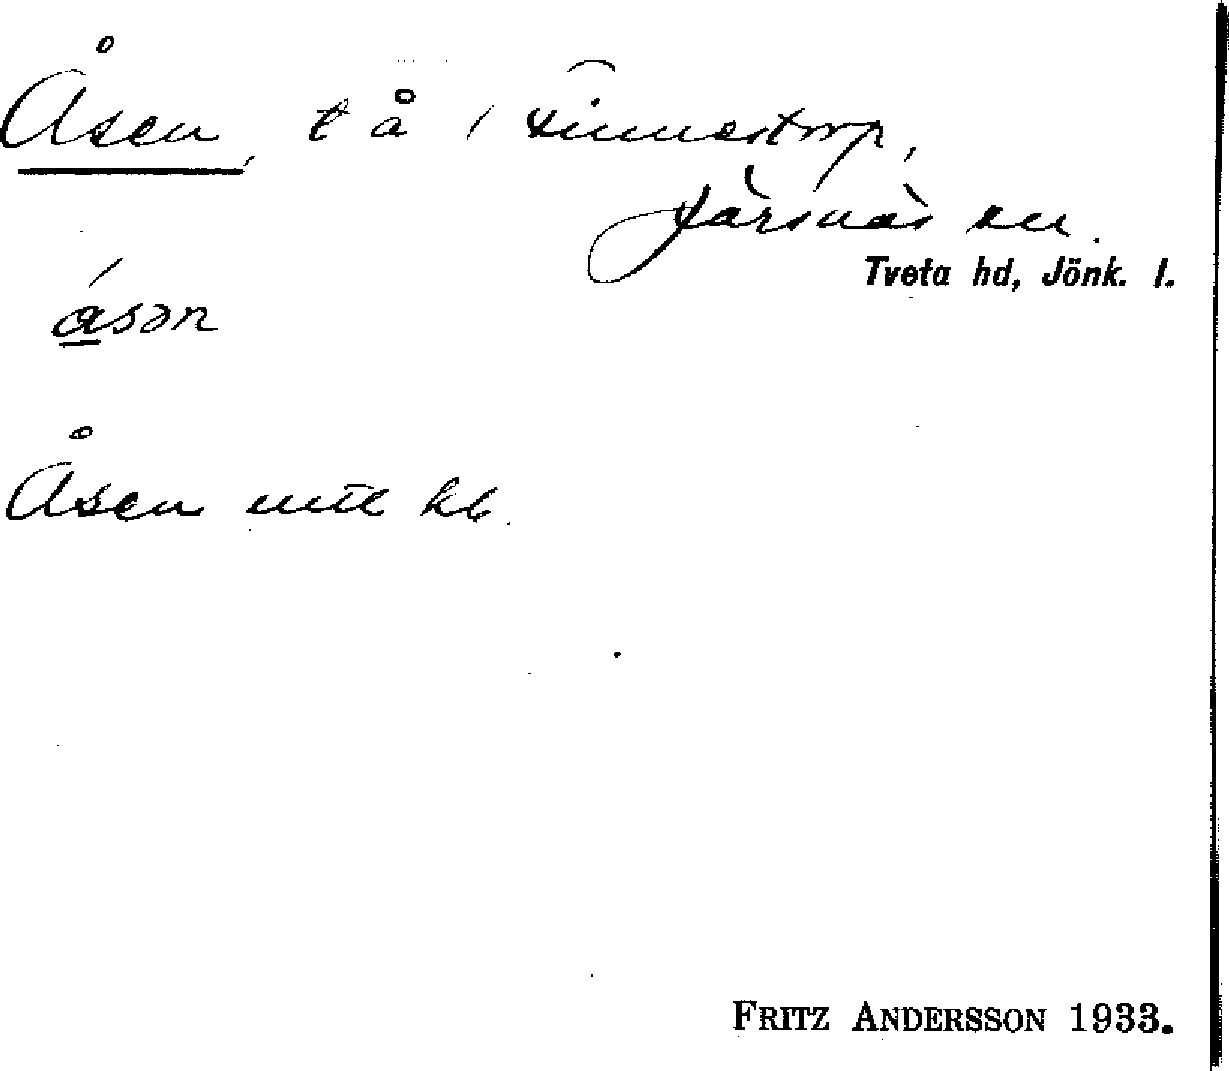 Åsen, t å i Finnestorp,
Järsnäs sn.
Tveta hd, Jönk. l.
åsən
Åsen mtl kb.
FRITZ ANDERSSON 1933.